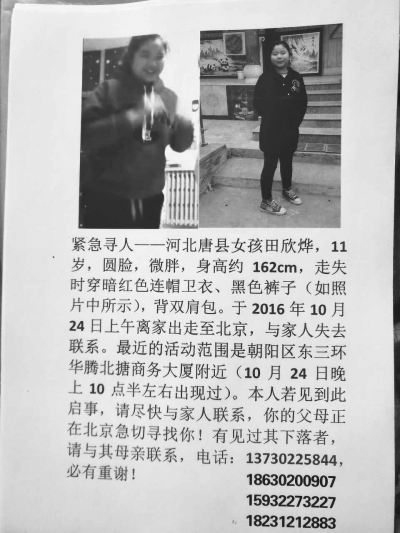 紧急寻人——河北唐县女孩田欣烨，11
岁，圆脸，微胖，身高约 162cm，走失
时穿暗红色连帽卫衣、黑色裤子（如照
片中所示），背双肩包。于 2016 年 10 月
24 日上午离家出走至北京，与家人失去
联系。最近的活动范围是朝阳区东三环
华腾北搪商务大厦附近（10 月 24 日晚
上 10 点半左右出现过）。本人若见到此
启事，请尽快与家人联系，你的父母正
在北京急切寻找你！有见过其下落者，
请与其母亲联系，电话：13730225844，
必有重谢！ 18630200907
15932273227
18231212883